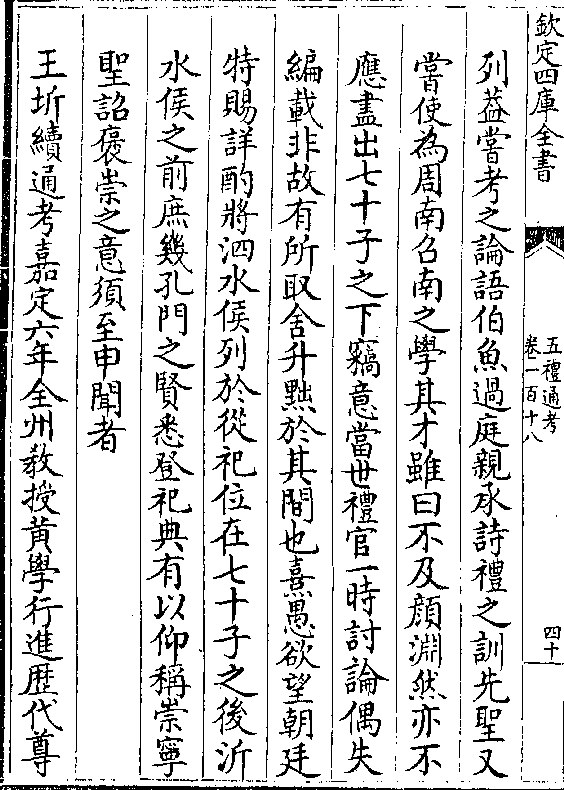 欽定四庫全書
五禮通考
卷一百十八
四十
列葢嘗考之論語伯魚過庭親承詩禮之訓先聖又
嘗使為周南召南之學其才雖曰不及顔淵然亦不
應盡出七十子之下竊意當世禮官一時討論偶失
編載非故有所取舍升黜於其間也熹愚欲望朝廷
特賜詳酌將泗水侯列於從祀位在七十子之後沂
水侯之前庶幾孔門之賢悉登祀典有以仰稱崇寧
聖詔襃崇之意須至申聞者
王圻續通考嘉定六年全州敎授黄學行進歴代尊